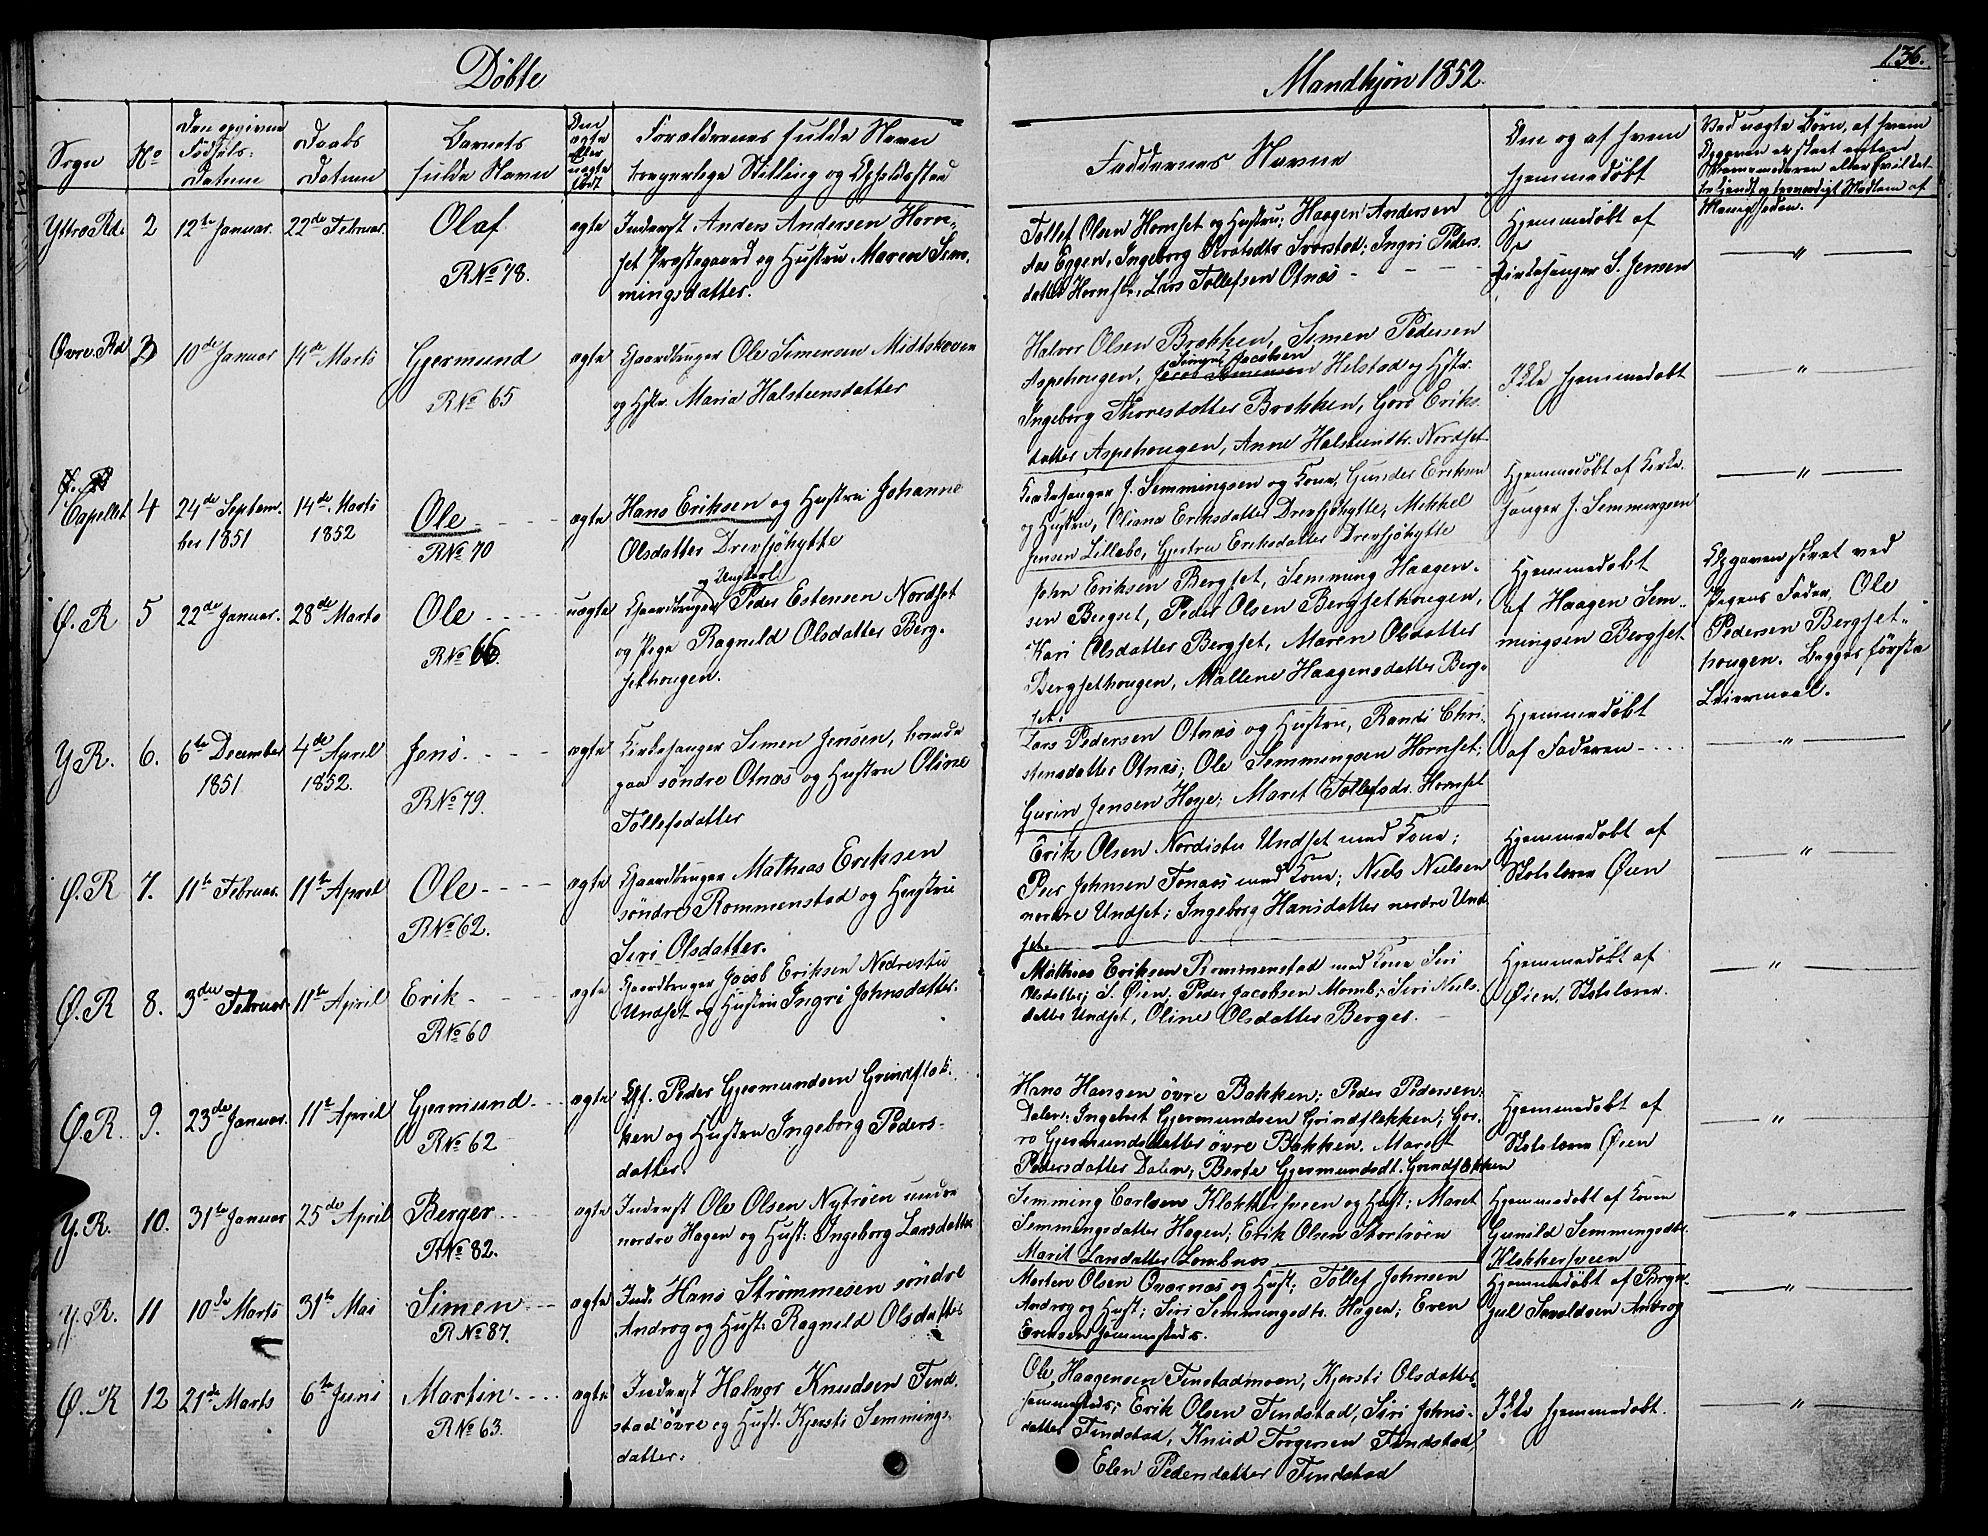 Döbte
Mandkjøn 1852.
136.
Sogn
No
Den opgivne Fødsels-Datum
Daabs Datum
Barnets fulde Navn
Om ægte eller uægte født
Forældrenes fulde Navn borgerlige Stilling og Opholdssted
Faddernes Navne
Om og af hvem hjemmedøbt
Ved uægte Børn, af hvem Opgaven er skeet enten
Ytre Rd. 2 12te Januar. 22de Februar. Olaf. RNo 78. ægte
Inderst Anders Andersen Horn-
set Præstegaard og Hustru Maren Sem-
mingsdatter.
Tollef Olsen Hornset og Hustru; Haagen Andersen
Aas Eggen, Ingeborg Sivorstad; Ingri Peders-
datter Hornset, Lars Tollefsen Otnæs
Hjemmedøbt af
Kirkesanger S. Jensen
"
Øvre Rd 3 10de Januar 14de Marts Gjermund RNo 65 ægte
Gaardbruger Ole Simensen Midtskoven
og Hstr. Maria Halsteensdatter
Halvor Olsen Brækken, Simen Pedersen
Aspehougen, Jacobsen Helstad og Hstr.
Ingeborg Thoresdatter Brækken, Goro Eriks-
datter Aspehougen, Anne Halsteindtr. Nordset
Ikke hjemmedøbt
"
Capellet 4 24de Septem- 14de Marts Ole RNo 70 ægte
ber 1851 1852
Hans Eriksen og Hustru Johanne
Olsdatter Drevsjöhytte
Kirkesanger J. Semmingsen og Kone, Gunder Eriksen
og Hustru, Oliana Eriksdatter Drevsjöhytte, Mikkel
Jensen Lillebo, Gjertru Eriksdatter Drevsjöhytte
Hjemmedøbt af Kirke-
sanger J. Semmingsen
"
Ø. R 5 22de Januar. 28de Marts Ole RNo 66. uægte
og Ungkarl
Gaardbruger Peder Estensen Nordset
og Pige Ragnild Olsdatter Berg-
sethougen.
John Eriksen Bergset, Semming Haagen-
sen Bergset, Peder Olsen Bergsethougen,
Kari Olsdatter Bergset, Maren Olsdatter
Bergsethougen, Mallene Haagensdatter Berg-
set.
Hjemmedøbt
af Haagen Sem-
mingsen Bergset
Opgaven skeet ved
Pigens Fader, Ole
Pedersen Bergset-
hougen. Begges første
Leiermaal.
Y R. 6. 6te December 4de April Jens. RNo 79. ægte
1851 1852.
Kirkesanger Simen Jensen, boende
paa söndre Otnæs og Hustru Oline
Tollefsdatter
Lars Pedersen Otnæs og Hustru, Randi Chri-
stensdatter Otnæs; Ole Semmingsen Hornset;
Gurin Jensen Hoye; Maret Tollefsdr. Hornset
Hjemmedøbt
af Faderen
"
Ø. R 7. 11te Februar. 11te April Ole RNo 62. ægte
Gaardbruger Mathias Eriksen
söndre Rommenstad og Hustru
Siri Olsdatter.
Erik Olsen Nordistu Undset med Kone;
Peer Johnsen Tonaas med Kone; Niels Nielsen
nordre Undset; Ingeborg Hansdatter nordre Und-
set.
Hjemmedøbt af
Skolelærer Øien
"
Ø. R 8. 3die Februar 11te April Erik RNo 60 ægte
Gaardbruger Jacob Eriksen Nedrestu
Undset og Hustru Ingri Johnsdatter.
Mathias Eriksen Rommenstad med Kone Siri
Olsdatter; S. Øien; Peder Jacobsen Momb; Siri Niels-
datter Undset, Oline Olsdatter Berger.
Hjemmedøbt af
Øien, Skolelærer.
"
Ø. R. 9. 23de Januar. 11te April Gjermund RNo 62 ægte
Gf. Peder Gjermundsen Grindflæk-
ken og Hustru Ingeborg Peders-
datter.
Hans Hansen øvre Bakken; Peder Pedersen
Dalen; Ingebret Gjermundsen Grindflekken; Go-
ro Gjermundsdatter øvre Bakken. Maret
Pedersdatter Dalen; Berte Gjermundsdt. Grindflekken
Hjemmedøbt af
Skolelærer Øien
"
Y. R. 10. 31te Januar 25de April Berger RNo 82. ægte
Inderst Ole Olsen Nytröen under
nordre Hagen og Hust: Ingeborg Larsdatter
Semming Carlsen Klokkersveen og Hust: Maret
Semmingsdatter Hagen; Erik Olsen Stortröen
Marit Larsdatter Lombnæs
Hjemmedøbt af Konen
Gunild Semmingsdtr.
Klokkersveen
"
Y. R. 11 10de Marts 31te Mai Simen RNo 87. ægte
Ind. Hans Strømmesen söndre
Androg og Hust: Ragnild Olsdatter
Morten Olsen Ovarnæs og Hust; Tollef Johnsen
Androg og Hust; Siri Semmingsdtr. Hagen; Even
Eriksen
Hjemmedøbt af
Androg
"
Ø. R 12 21de Marts 6te Juni Martin RNo 63. ægte
Inderst Halvor Knudsen Find-
stad øvre og Hust. Kjersti Semmings-
datter.
Ole Haagensen Finstadmoen, Kjersti Olsdatter
Erik Olsen Findstad, Siri Johns-
datter Findstad, Knud Torgersen Findstad
Elen Pedersdatter Findstad
Ikke hjemmedøbt.
"